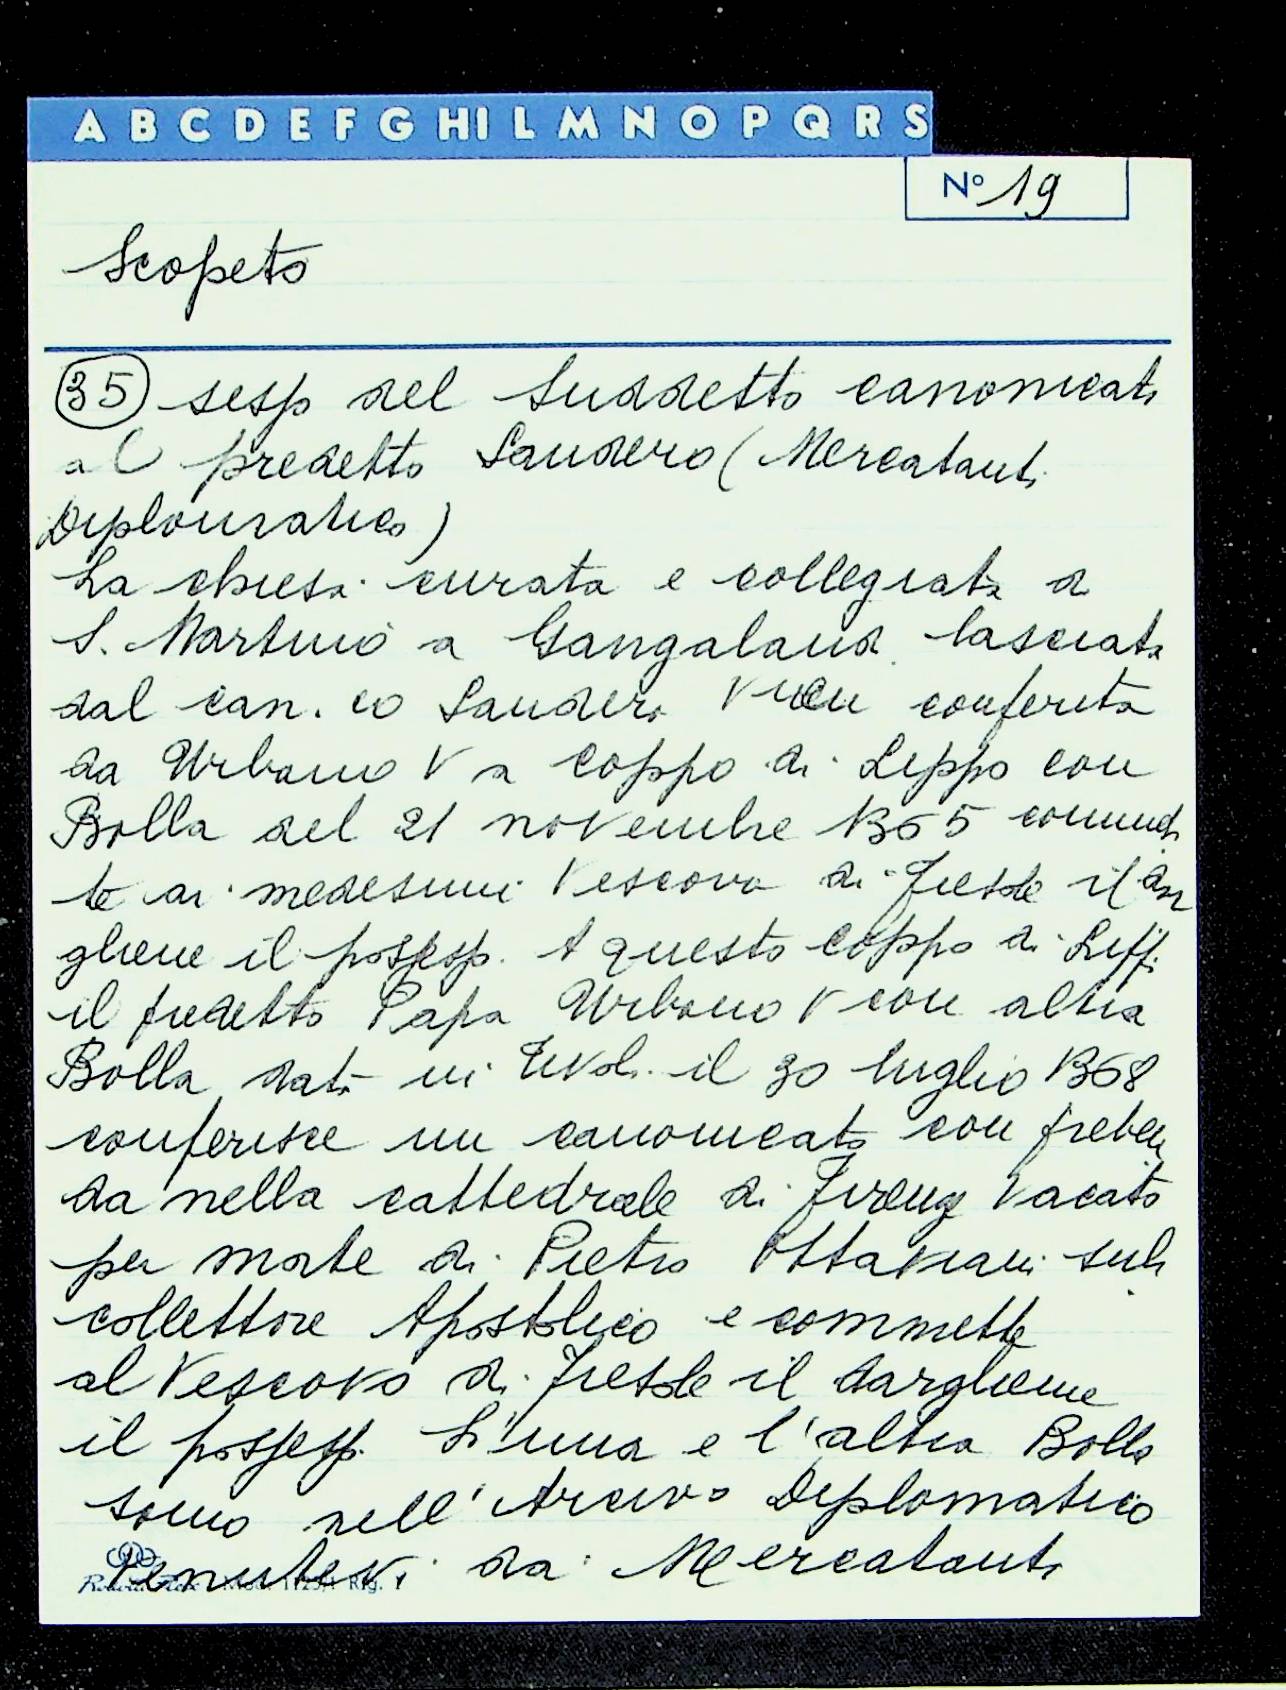 A B C D E F G H I L M N O P Q R S
Nº 19
Scopeto
35 sesso del suddetto canonicato
al predetto Sandero (Mercatanti
Diplomatico)
La chiesa curata e collegiata di
S. Martino a Gangalandi lasciata
dal can.co Sandero vien conferita
da Urbano V a Coppo di Lippo con
Bolla del 21 novembre 1365 commet
te ai medesimi Vescovo di Fiesole il dar
gliene il possesso. A questo Coppo di Lippi
il predetto Papa Urbano V con altra
Bolla data in Tivoli il 30 luglio 1368
conferisce un canonicato con preben
da nella cattedrale di Firenze vacato
per morte di Pietro Ottaviani sub
collettore Apostolico e commette
al Vescovo di Fiesole il dargliene
il possesso. L'una e l'altra Bolla
sono nell'Arcivo Diplomatico
venutevi da Mercatanti